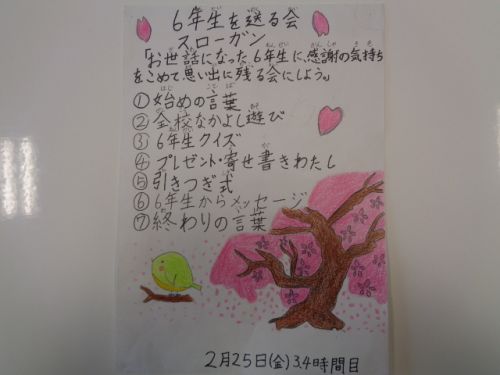 6年生を送る会
スローガン
「お世話になった6年生に、感謝の気持ち
をこめて思い出に残る会にしよう。」
①始めの言葉
②全校なかよし遊び
③6年生クイズ
④プレゼント・寄せ書きわたし
⑤引きつぎ式
⑥6年生からメッセージ
⑦終わりの言葉
2月25日(金)3.4時間目